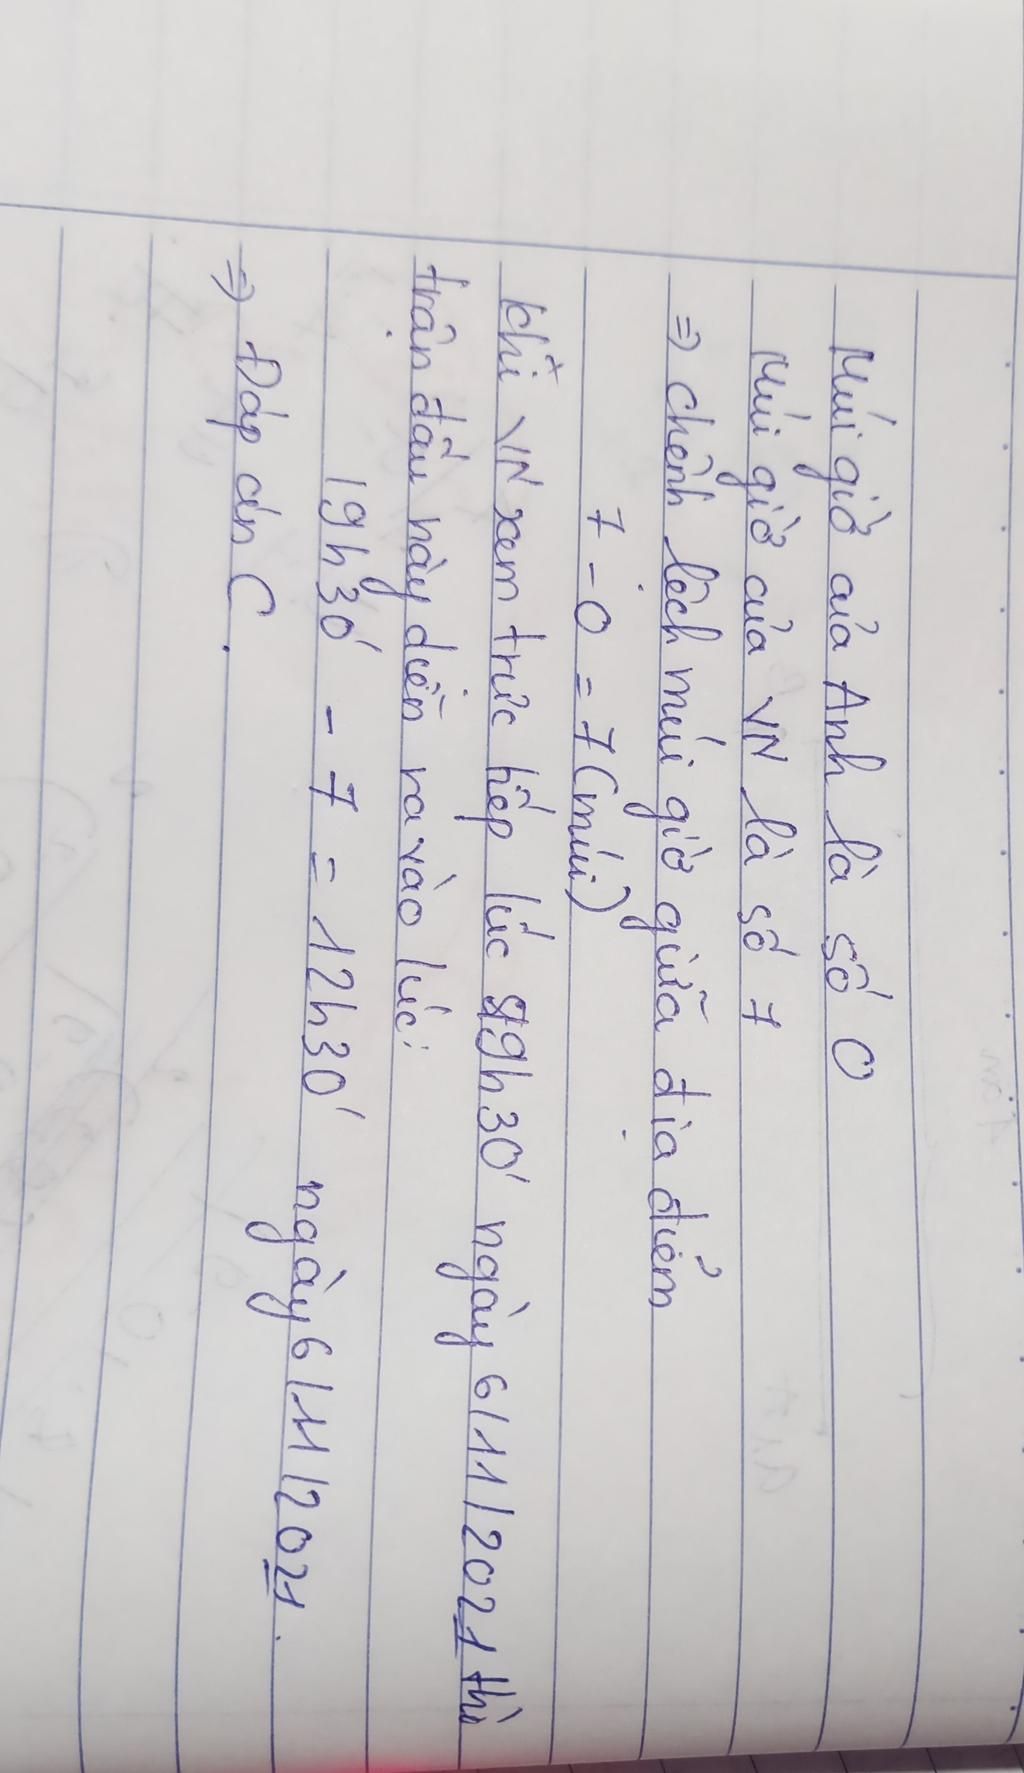 Múi giờ của Anh là số 0
Múi giờ của VN là số 7
=> chênh lệch múi giờ giữa địa điểm
7 - 0 = 7 (múi)
khi VN xem trực tiếp lúc 19h30' ngày 6/11/2021 thì
trận đấu này diễn ra vào lúc:
19h30' - 7 = 12h30' ngày 6/11/2021.
=> Đáp án C.